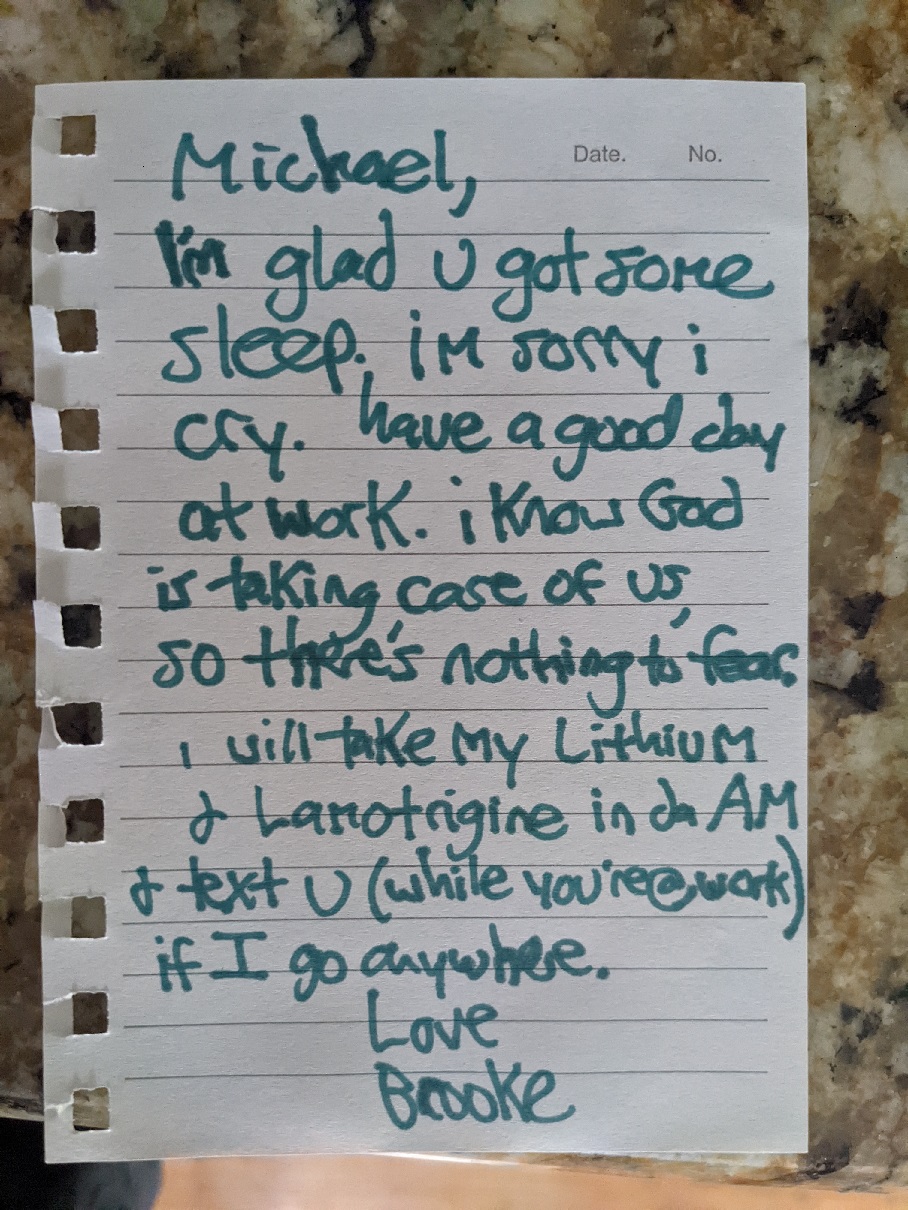 Date. No.
Michael,
I'm glad U got some
sleep. im sorry i
cry. have a good day
at work. i know God
is taking care of us,
so there's nothing to fear.
i will take my Lithium
& Lamotrigine in da AM
& text U (while you're @ work)
if I go anywhere.
Love
Brooke